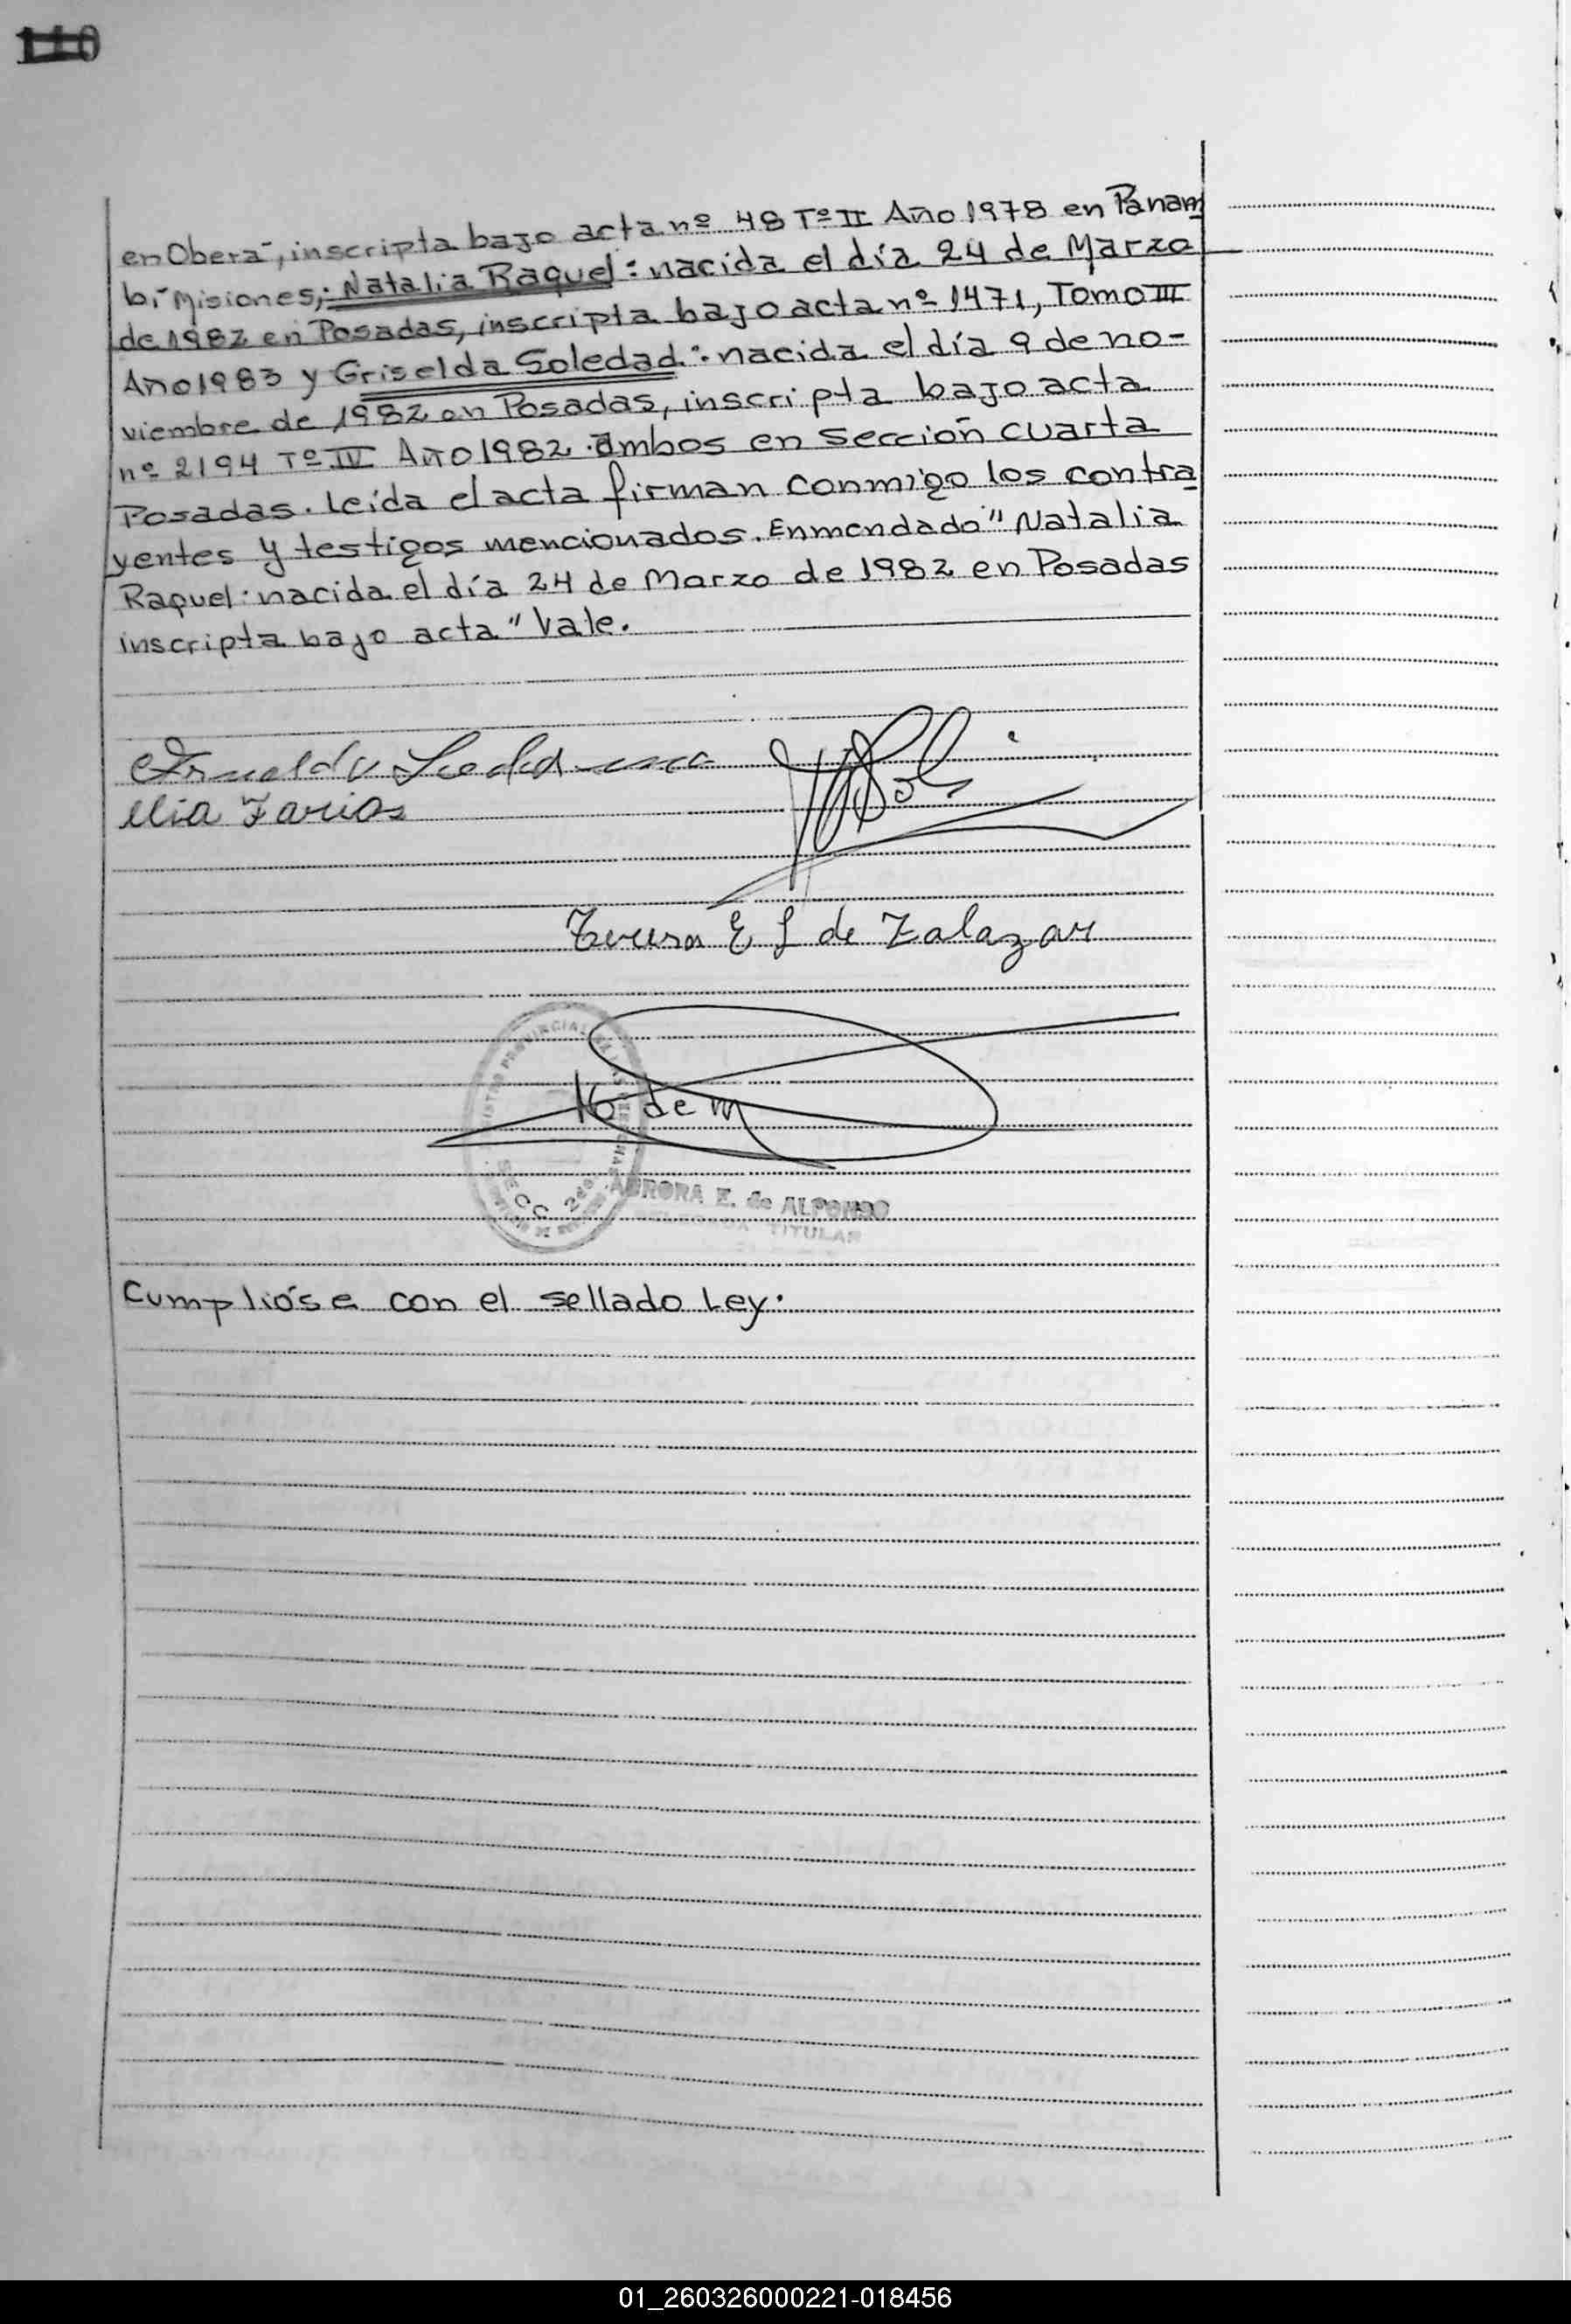 110
en Oberá, inscripta bajo acta nº 48 Tº II Año 1978 en Panam
bí Misiones; Natalia Raquel: nacida el día 24 de Marzo
de 1982 en Posadas, inscripta bajo acta nº 1471, Tomo III
Año 1983 y Griselda Soledad: nacida el día 9 de no-
viembre de 1982 en Posadas, inscripta bajo acta
nº 2194 Tº IV Año 1982. ambos en Sección cuarta
Posadas. Leída el acta firman conmigo los contra
yentes y testigos mencionados. Enmendado "Natalia
Raquel: nacida el día 24 de Marzo de 1982 en Posadas
inscripta bajo acta" Vale.
Arnaldo Ledesma
Elia Farias
Teresa E L de Zalazar
SECC 2da
AURORA E. de ALFONSO
DELEGADA TITULAR
Cumplióse con el sellado Ley.
01_260326000221-018456